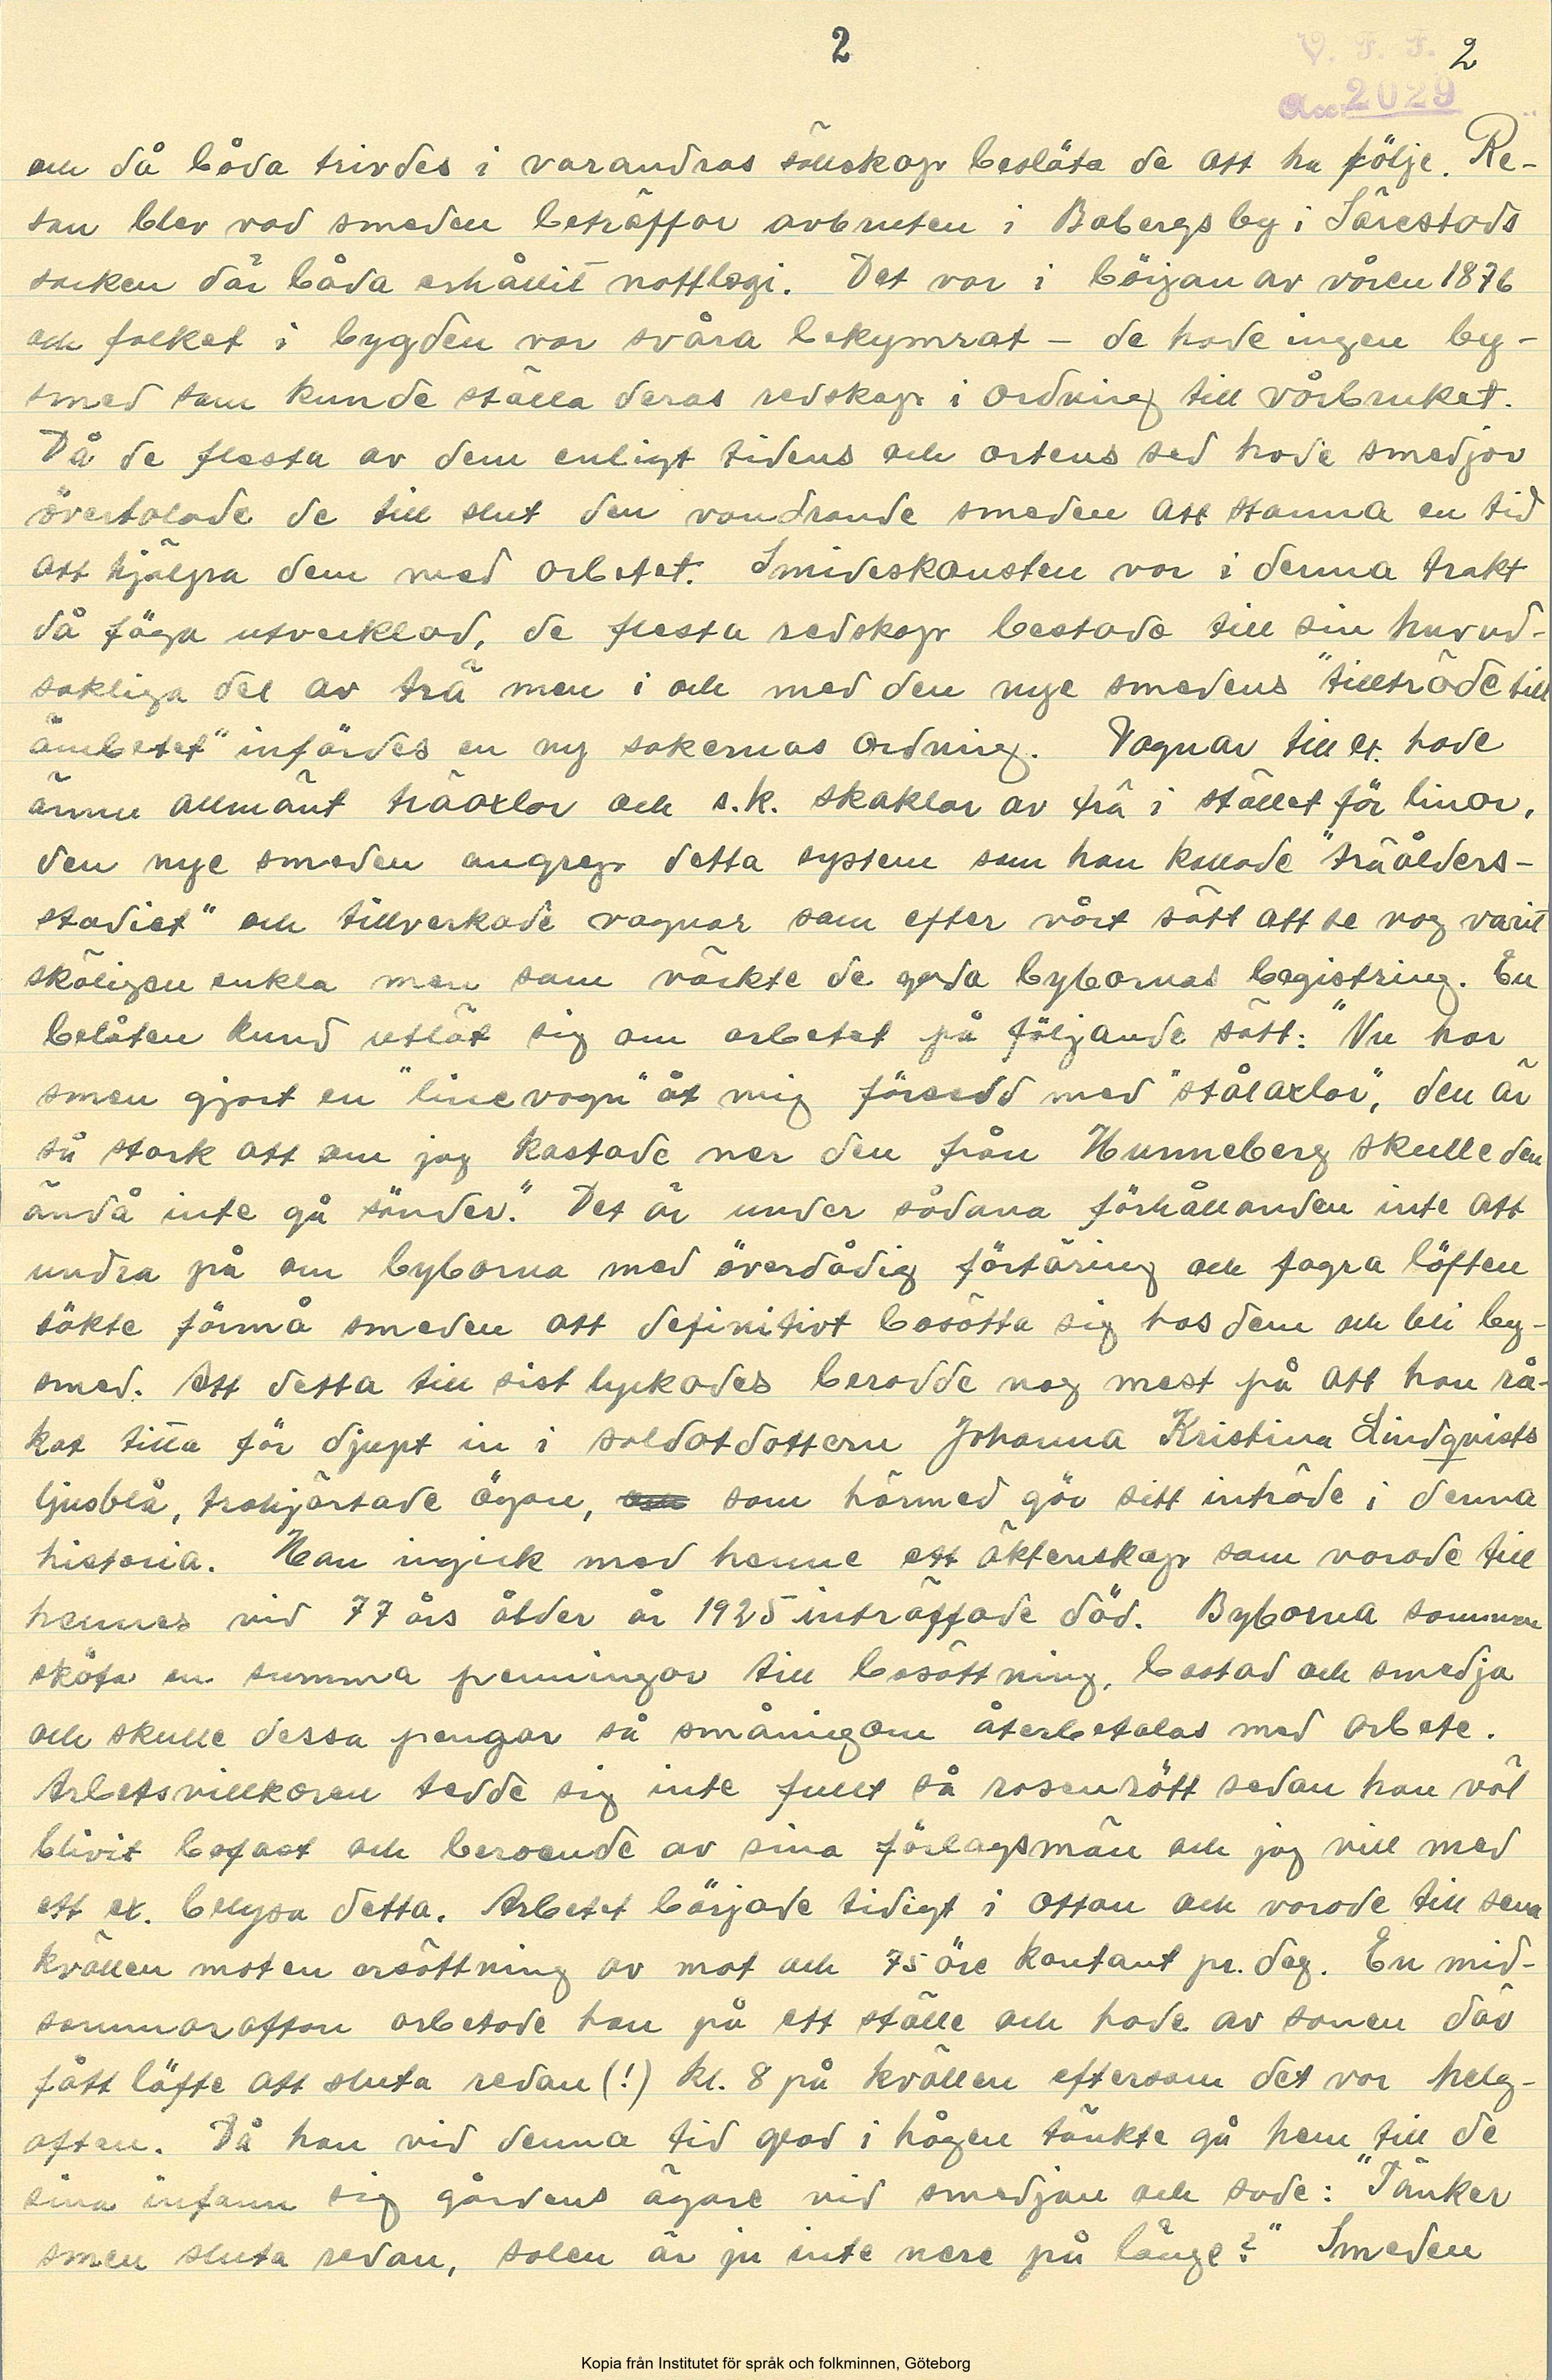 2
V. F. F. 2
Acc 2029
och då båda trivdes i varandras sällskap beslöto de att ha följe. Re-
san blev vad smeden beträffar avbruten i Babergs by i Särestads
socken där båda erhållit nattlogi. Det var i början av våren 1876
och folket i bygden var svåra bekymrat – de hade ingen by-
smed som kunde ställa deras redskap i ordning till vårbruket.
Då de flesta av dem enligt tidens och ortens sed hade smedjor
övertalade de till slut den vandrande smeden att stanna en tid
att hjälpa dem med arbetet. Smideskonsten var i denna trakt
då föga utvecklad, de flesta redskap bestodo till sin huvud-
sakliga del av trä men i och med den nye smedens "tillträde till
ämbetet" infördes en ny sakernas ordning. Vagnar till ex. hade
ännu allmänt träaxlar och s.k. skaklar av trä i stället för linor,
den nye smeden angrep detta system som han kallade "träålders-
stadiet" och tillverkade vagnar som efter vårt sätt att se nog varit
skäligen enkla men som väckte de goda bybornas begistring. En
belåten kund utlät sig om arbetet på följande sätt: "Nu har
smen gjort en "linevagn" åt mig försedd med "stålaxlar", den är
så stark att om jag kastade ner den från Hunneberg skulle den
ändå inte gå sönder." Det är under sådana förhållanden inte att
undra på om byborna med överdådig förtäring och fagra löften
sökte förmå smeden att definitivt bosätta sig hos dem och bli by-
smed. Att detta till sist lyckades berodde nog mest på att han rå-
kat titta för djupt in i soldatdottern Johanna Kristina Lindqvists
ljusblå, trohjärtade ögon, som härmed gör sitt inträde i denna
historia. Han ingick med henne ett äktenskap som varade till
hennes vid 77 års ålder år 1925 inträffade död. Byborna samman
sköto en summa penningar till bosättning, bostad och smedja
och skulle dessa pengar så småningom återbetalas med arbete.
Arbetsvillkoren tedde sig inte fullt så rosenrött sedan han väl
blivit bofast och beroende av sina förlagsmän och jag vill med
ett ex. belysa detta. Arbetet började tidigt i ottan och varade till sena
kvällen mot en ersättning av mat och 75 öre kontant pr. dag. En mid-
sommarafton arbetade han på ett ställe och hade av sonen där
fått löfte att sluta redan (!) kl. 8 på kvällen eftersom det var helg-
afton. Då han vid denna tid glad i hågen tänkte gå hem till de
sina infann sig gårdens ägare vid smedjan och sade: "Tänker
smen sluta redan, solen är ju inte nere på länge?" Smeden
Kopia från Institutet för språk och folkminnen, Göteborg